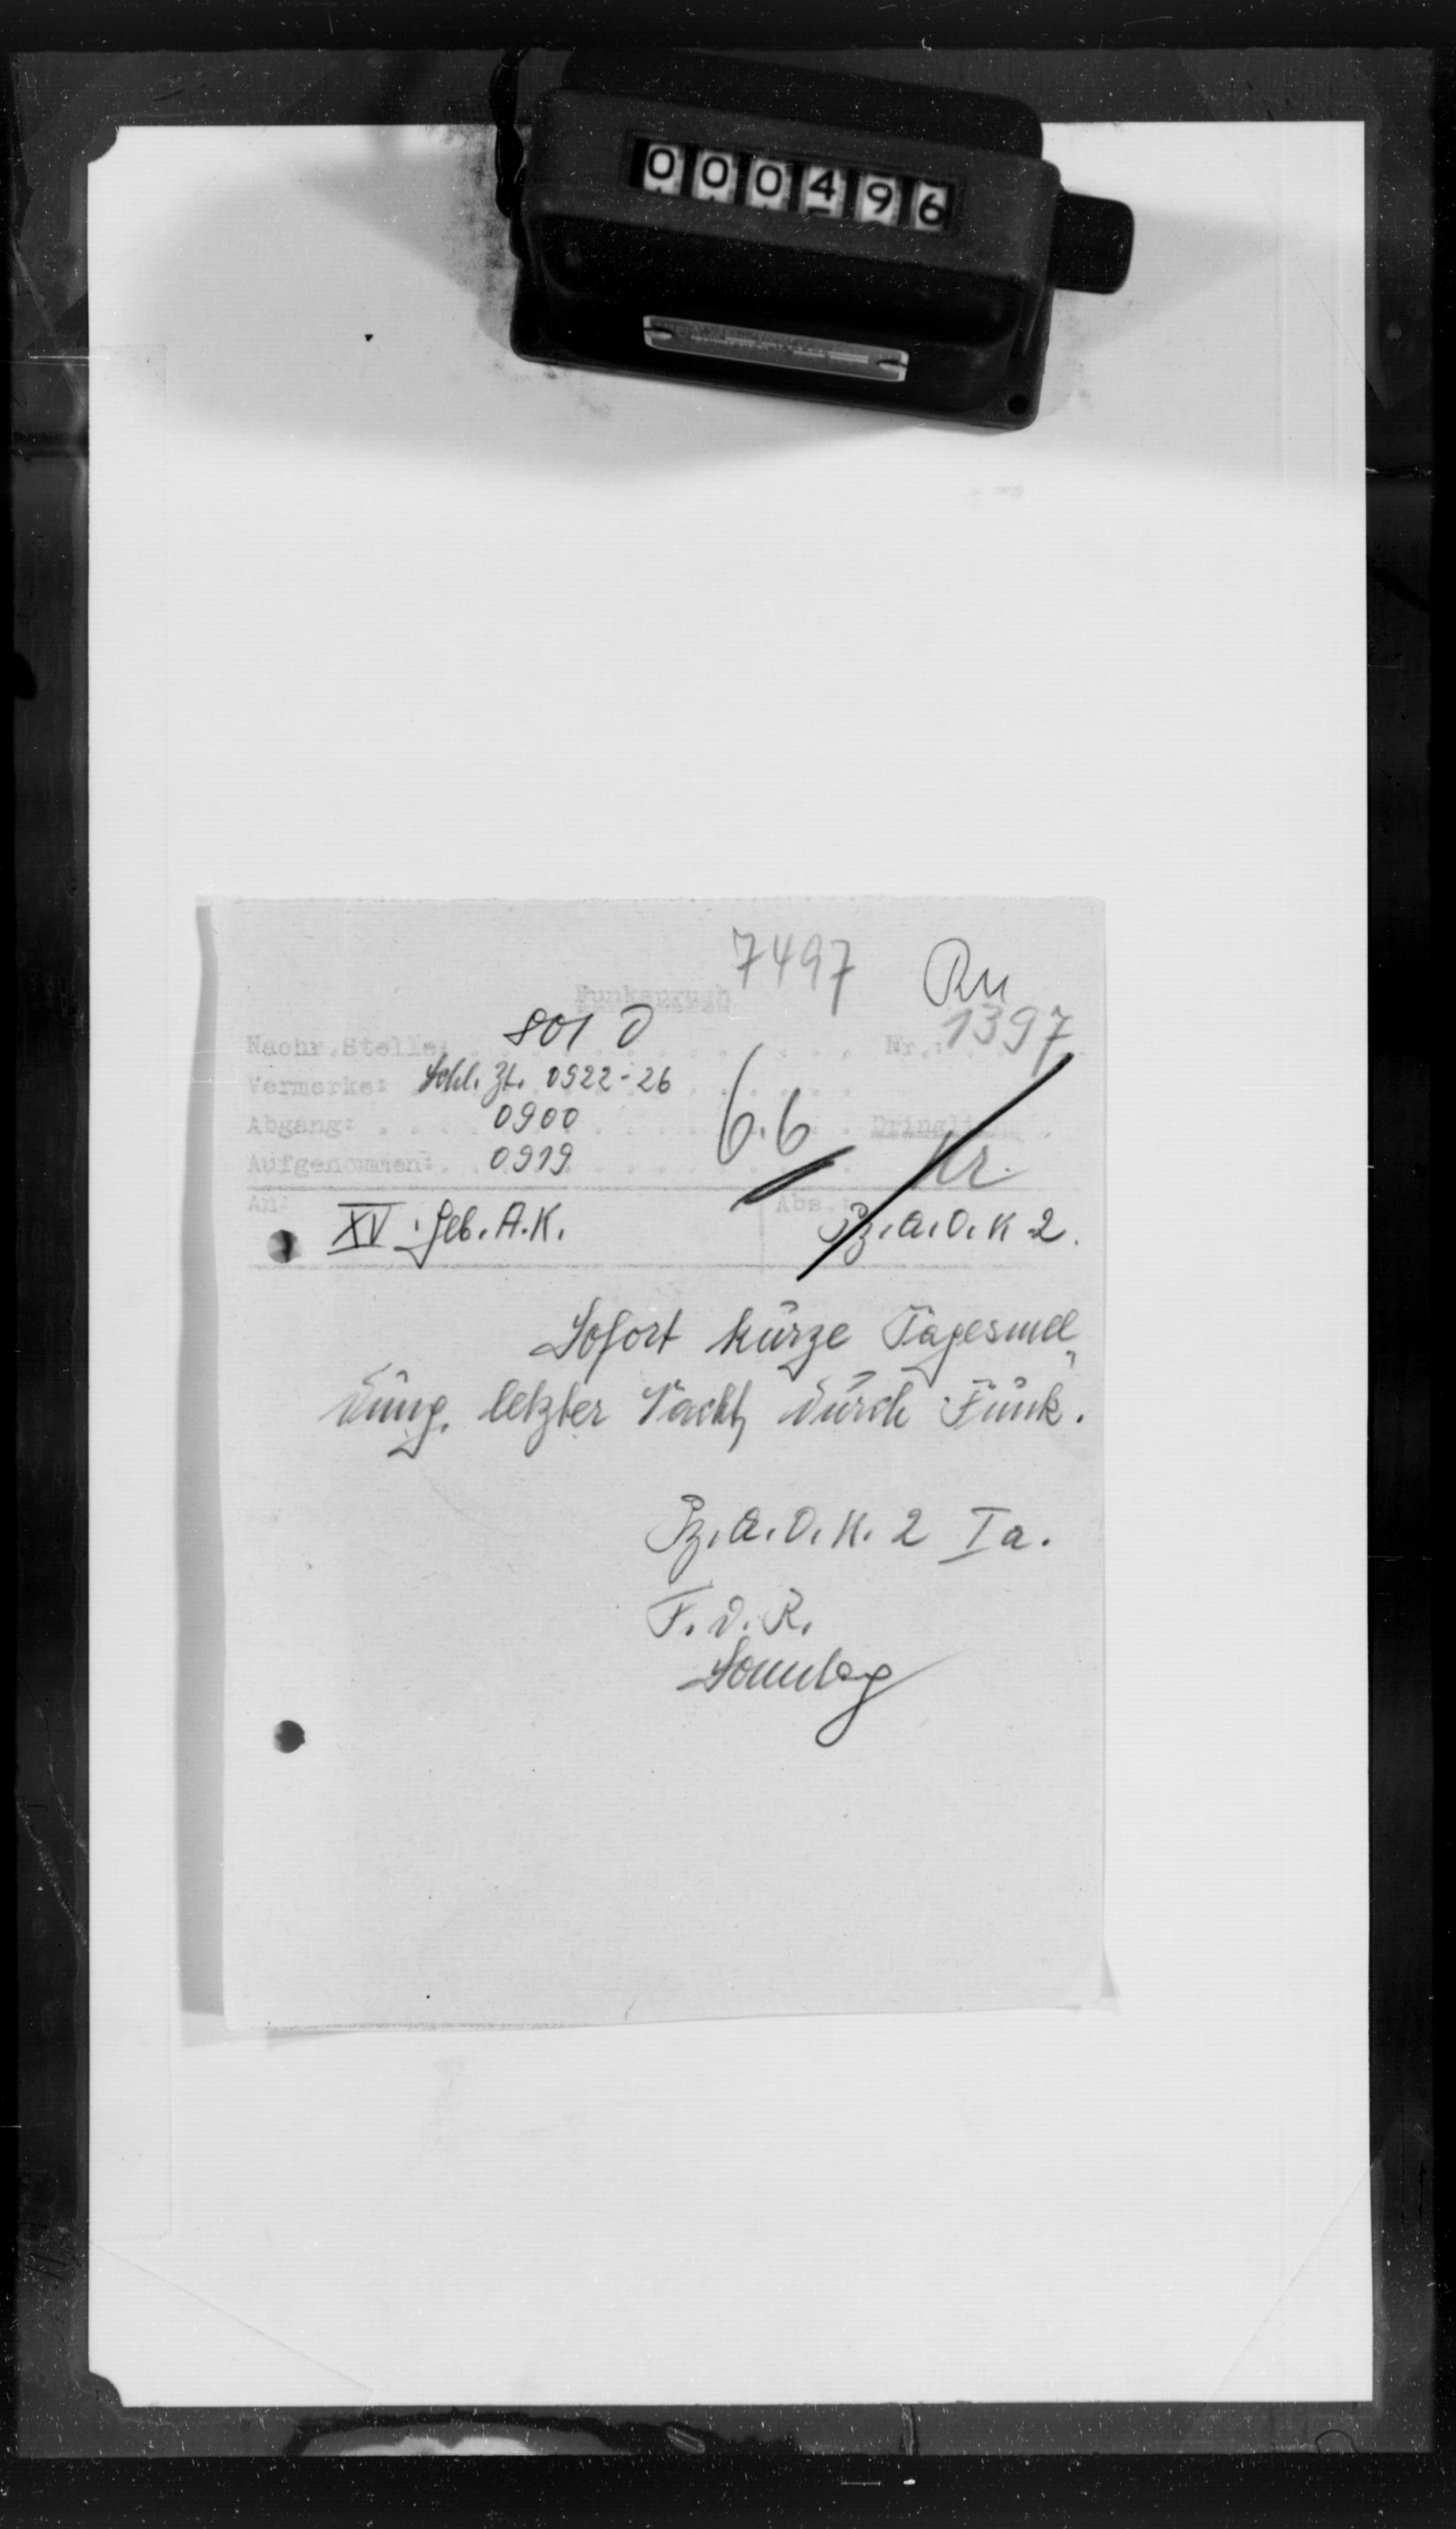 000496
7497 Ru
Funkspruch
Nachr.Stelle: 801 D Nr.: 1397
Vermerke: Schl. Zt. 0922-26
Abgang: 0900 6.6 Dringl
Aufgenommen: 0919 Kr.
An: XV. Geb. A.K. Abs. Pz. A.O.K 2.
Sofort kurze Tagesmel„
dung letzter Nacht, durch Funk.
Pz. A.O.K. 2 Ia.
F.d.R.
Sonntag